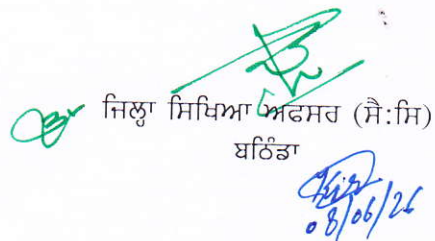 ਜਿਲ੍ਹਾ ਸਿਖਿਆ ਅਫਸਰ (ਸੈ:ਸਿ)
ਬਠਿੰਡਾ
08/06/26